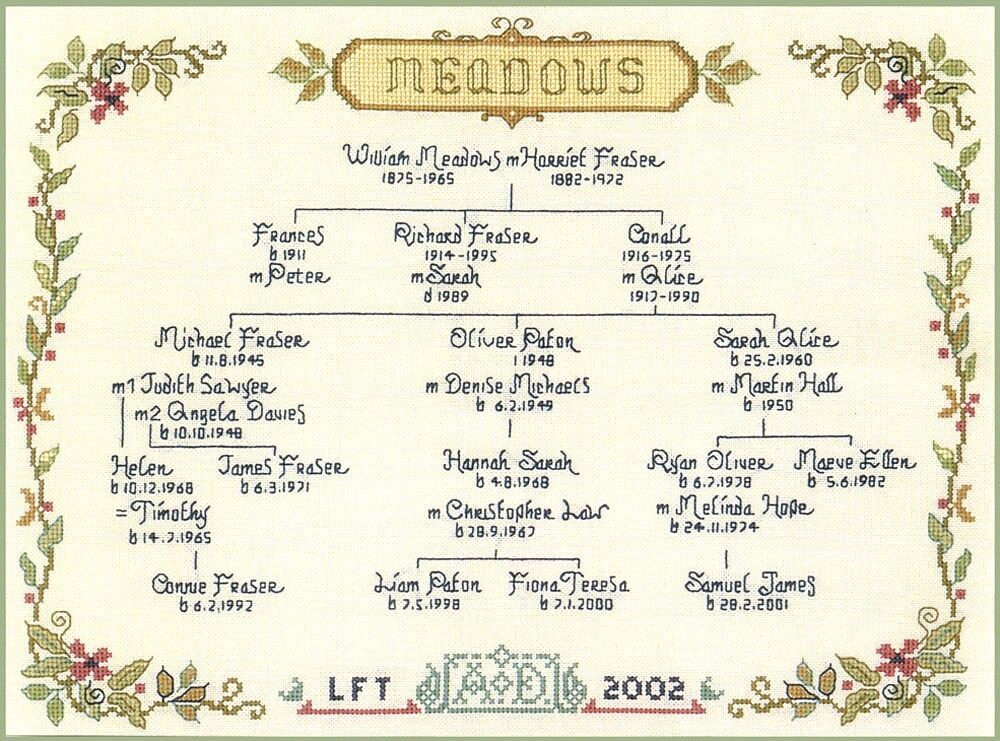 MEADOWS
William Meadows m Harriet Fraser
1875-1965 1882-1972
Frances Richard Fraser Conall
b 1911 1914-1995 1916-1975
m Peter m Sarah m Alice
d 1989 1917-1990
Michael Fraser Oliver Paton Sarah Alice
b 11.8.1945 1948 b 25.2.1960
m1 Judith Sawyer m Denise Michaels m Martin Hall
b 6.2.1949 b 1950
m2 Angela Davies
b 10.10.1948
Helen James Fraser Hannah Sarah Ryan Oliver Maeve Ellen
b 10.12.1968 b 6.3.1971 b 4.8.1968 b 6.7.1978 b 5.6.1982
= Timothy m Christopher Law m Melinda Hope
b 14.7.1965 b 28.9.1967 b 24.11.1974
Connie Fraser Liam Paton Fiona Teresa Samuel James
b 6.2.1992 b 7.5.1998 b 7.1.2000 b 28.2.2001
LFT A D 2002